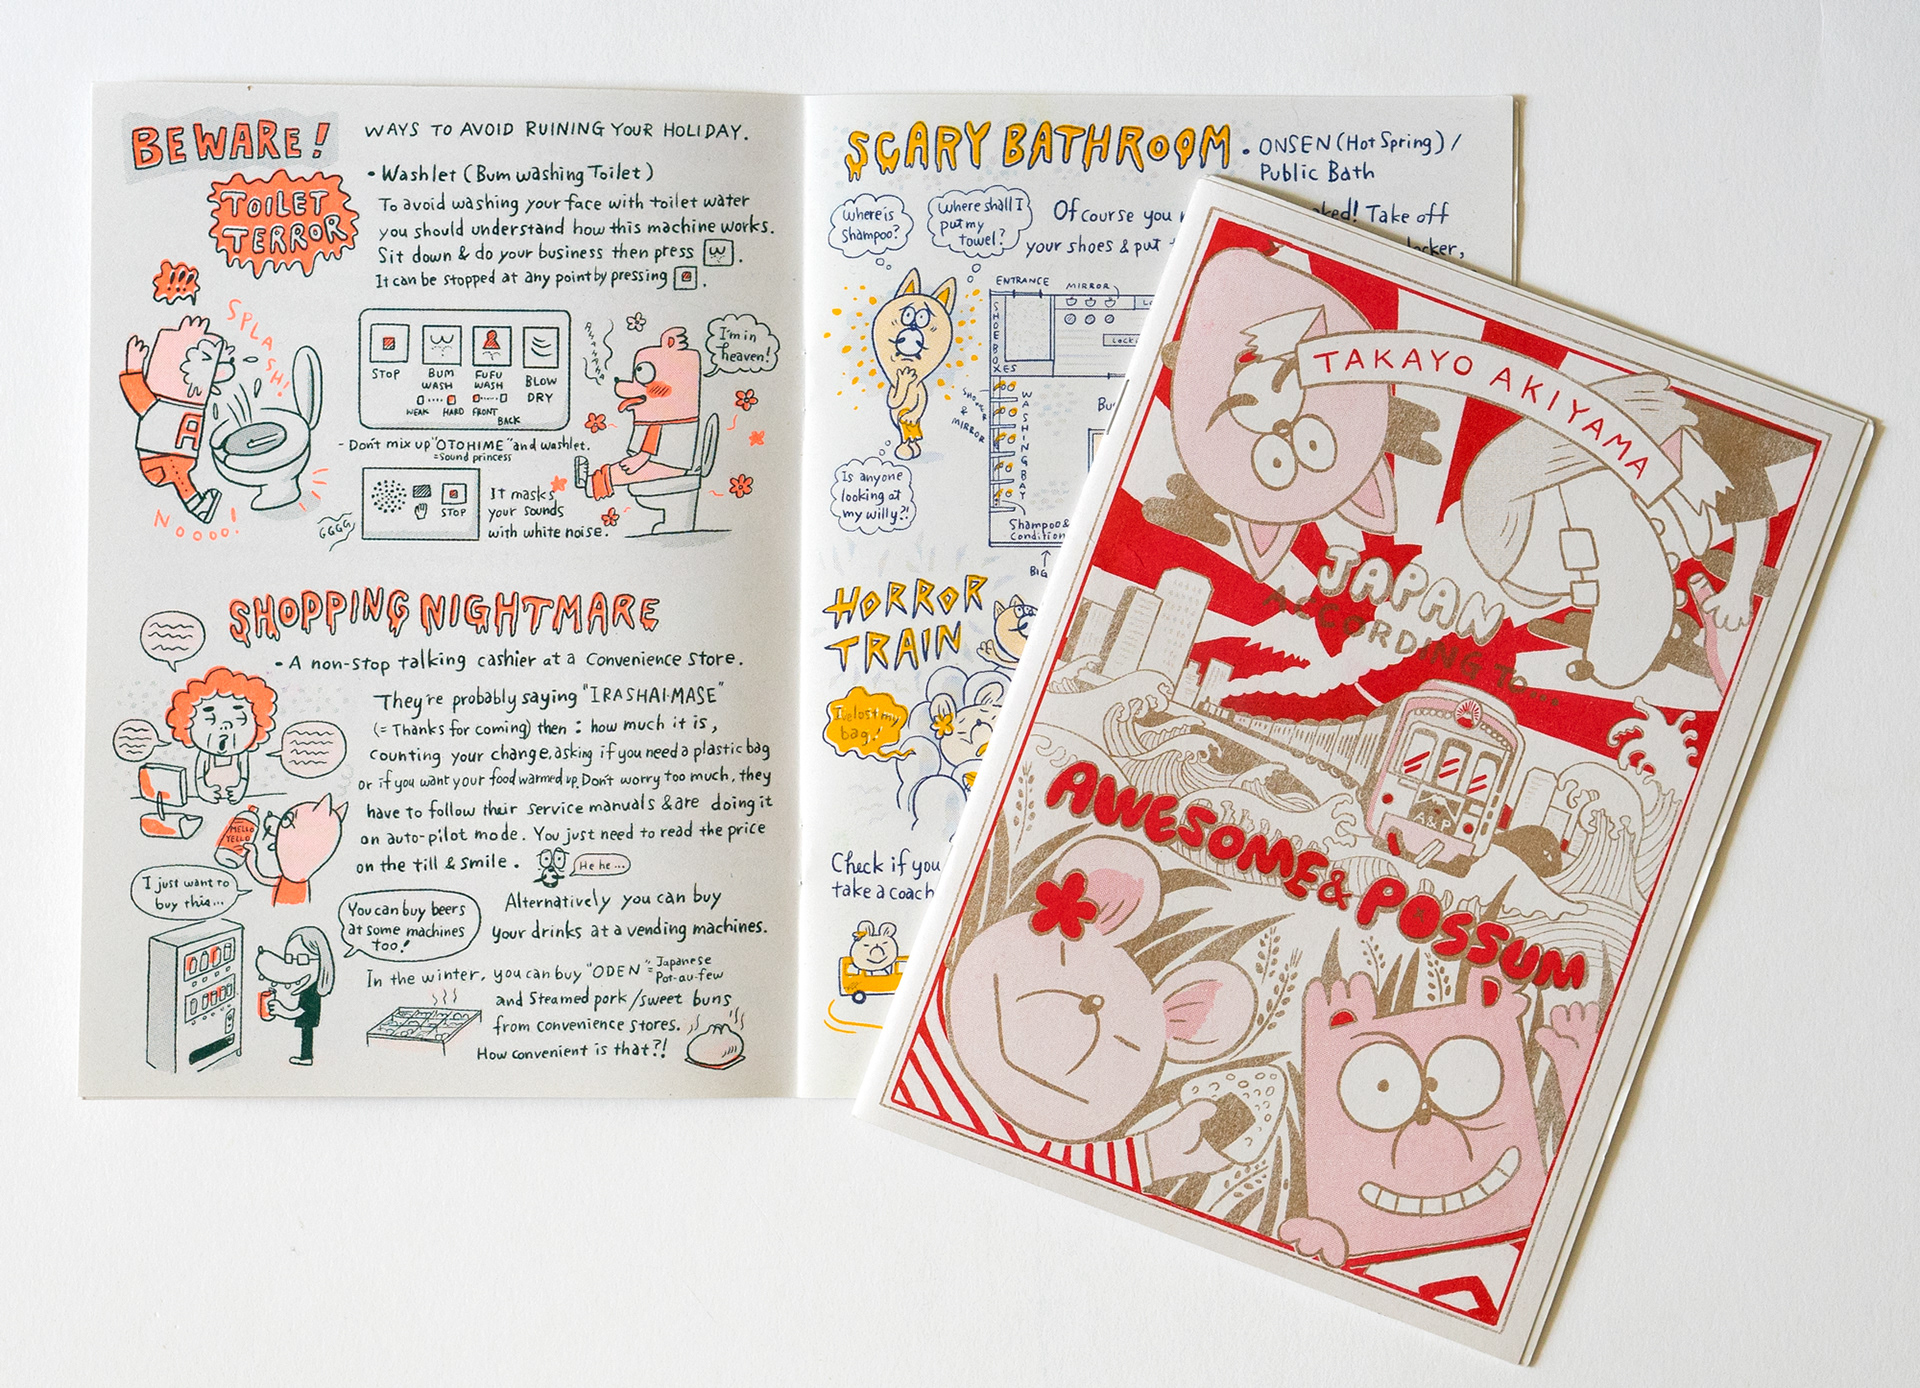 BEWARE!
WAYS TO AVOID RUINING YOUR HOLIDAY.
TOILET
TERROR
• Washlet (Bum washing Toilet)
To avoid washing your face with toilet water
you should understand how this machine works.
Sit down & do your business then press
.
It can be stopped at any point by pressing
.
!!!
SPLASH!
NOOOO!
A
STOP
BUM
WASH
FUFU
WASH
BLOW
DRY
WEAK
HARD
FRONT
BACK
I'm in
heaven!
- Don't mix up "OTOHIME" and washlet.
=Sound princess
STOP
GGGG
It masks
your sounds
with white noise.
SHOPPING NIGHTMARE
• A non-stop talking cashier at a convenience store.
They're probably saying "IRASHAI-MASE"
(= Thanks for coming) then : how much it is,
counting your change, asking if you need a plastic bag
or if you want your food warmed up. Don't worry too much, they
have to follow their service manuals & are doing it
on auto-pilot mode. You just need to read the price
on the till & smile.
He he...
MELLO
YELLO
I just want to
buy this...
You can buy beers
at some machines
too!
Alternatively you can buy
your drinks at a vending machines.
In the winter, you can buy "ODEN"
= Japanese
Pot-au-feu
and steamed pork/sweet buns
from convenience stores.
How convenient is that?!
SCARY BATHROOM
• ONSEN (Hot Spring) /
Public Bath
Where is
shampoo?
Where shall I
put my
towel?
Of course you
naked! Take off
your shoes & put
locker,
ENTRANCE
MIRROR
SHOEBOXES
SHOWER
&
MIRROR
WASHING BAY
Is anyone
looking at
my willy?!
Shampoo &
Condition
BIG
HORROR
TRAIN
I've lost my
bag!
Check if you
take a coach
TAKAYO AKIYAMA
JAPAN
ACCORDING TO...
A&P
AWESOME & POSSUM